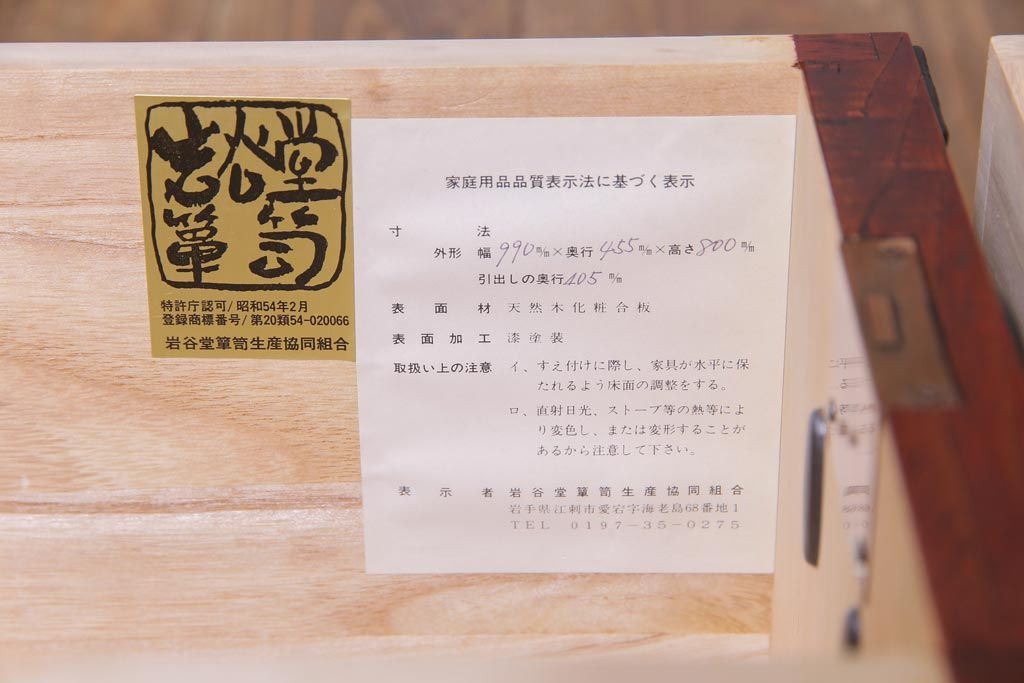 岩谷堂
簞笥
特許庁認可/昭和54年2月
登録商標番号/第20類54-020066
岩谷堂簞笥生産協同組合
家庭用品品質表示法に基づく表示
寸法
外形 幅 990 m/m × 奥行 455 m/m × 高さ 800 m/m
引出しの奥行 405 m/m
表面材 天然木化粧合板
表面加工 漆塗装
取扱い上の注意 イ、すえ付けに際し、家具が水平に保
たれるよう床面の調整をする。
ロ、直射日光、ストーブ等の熱等によ
り変色し、または変形することが
あるから注意して下さい。
表示者 岩谷堂簞笥生産協同組合
岩手県江刺市愛宕字海老島68番地1
TEL 0197-35-0275